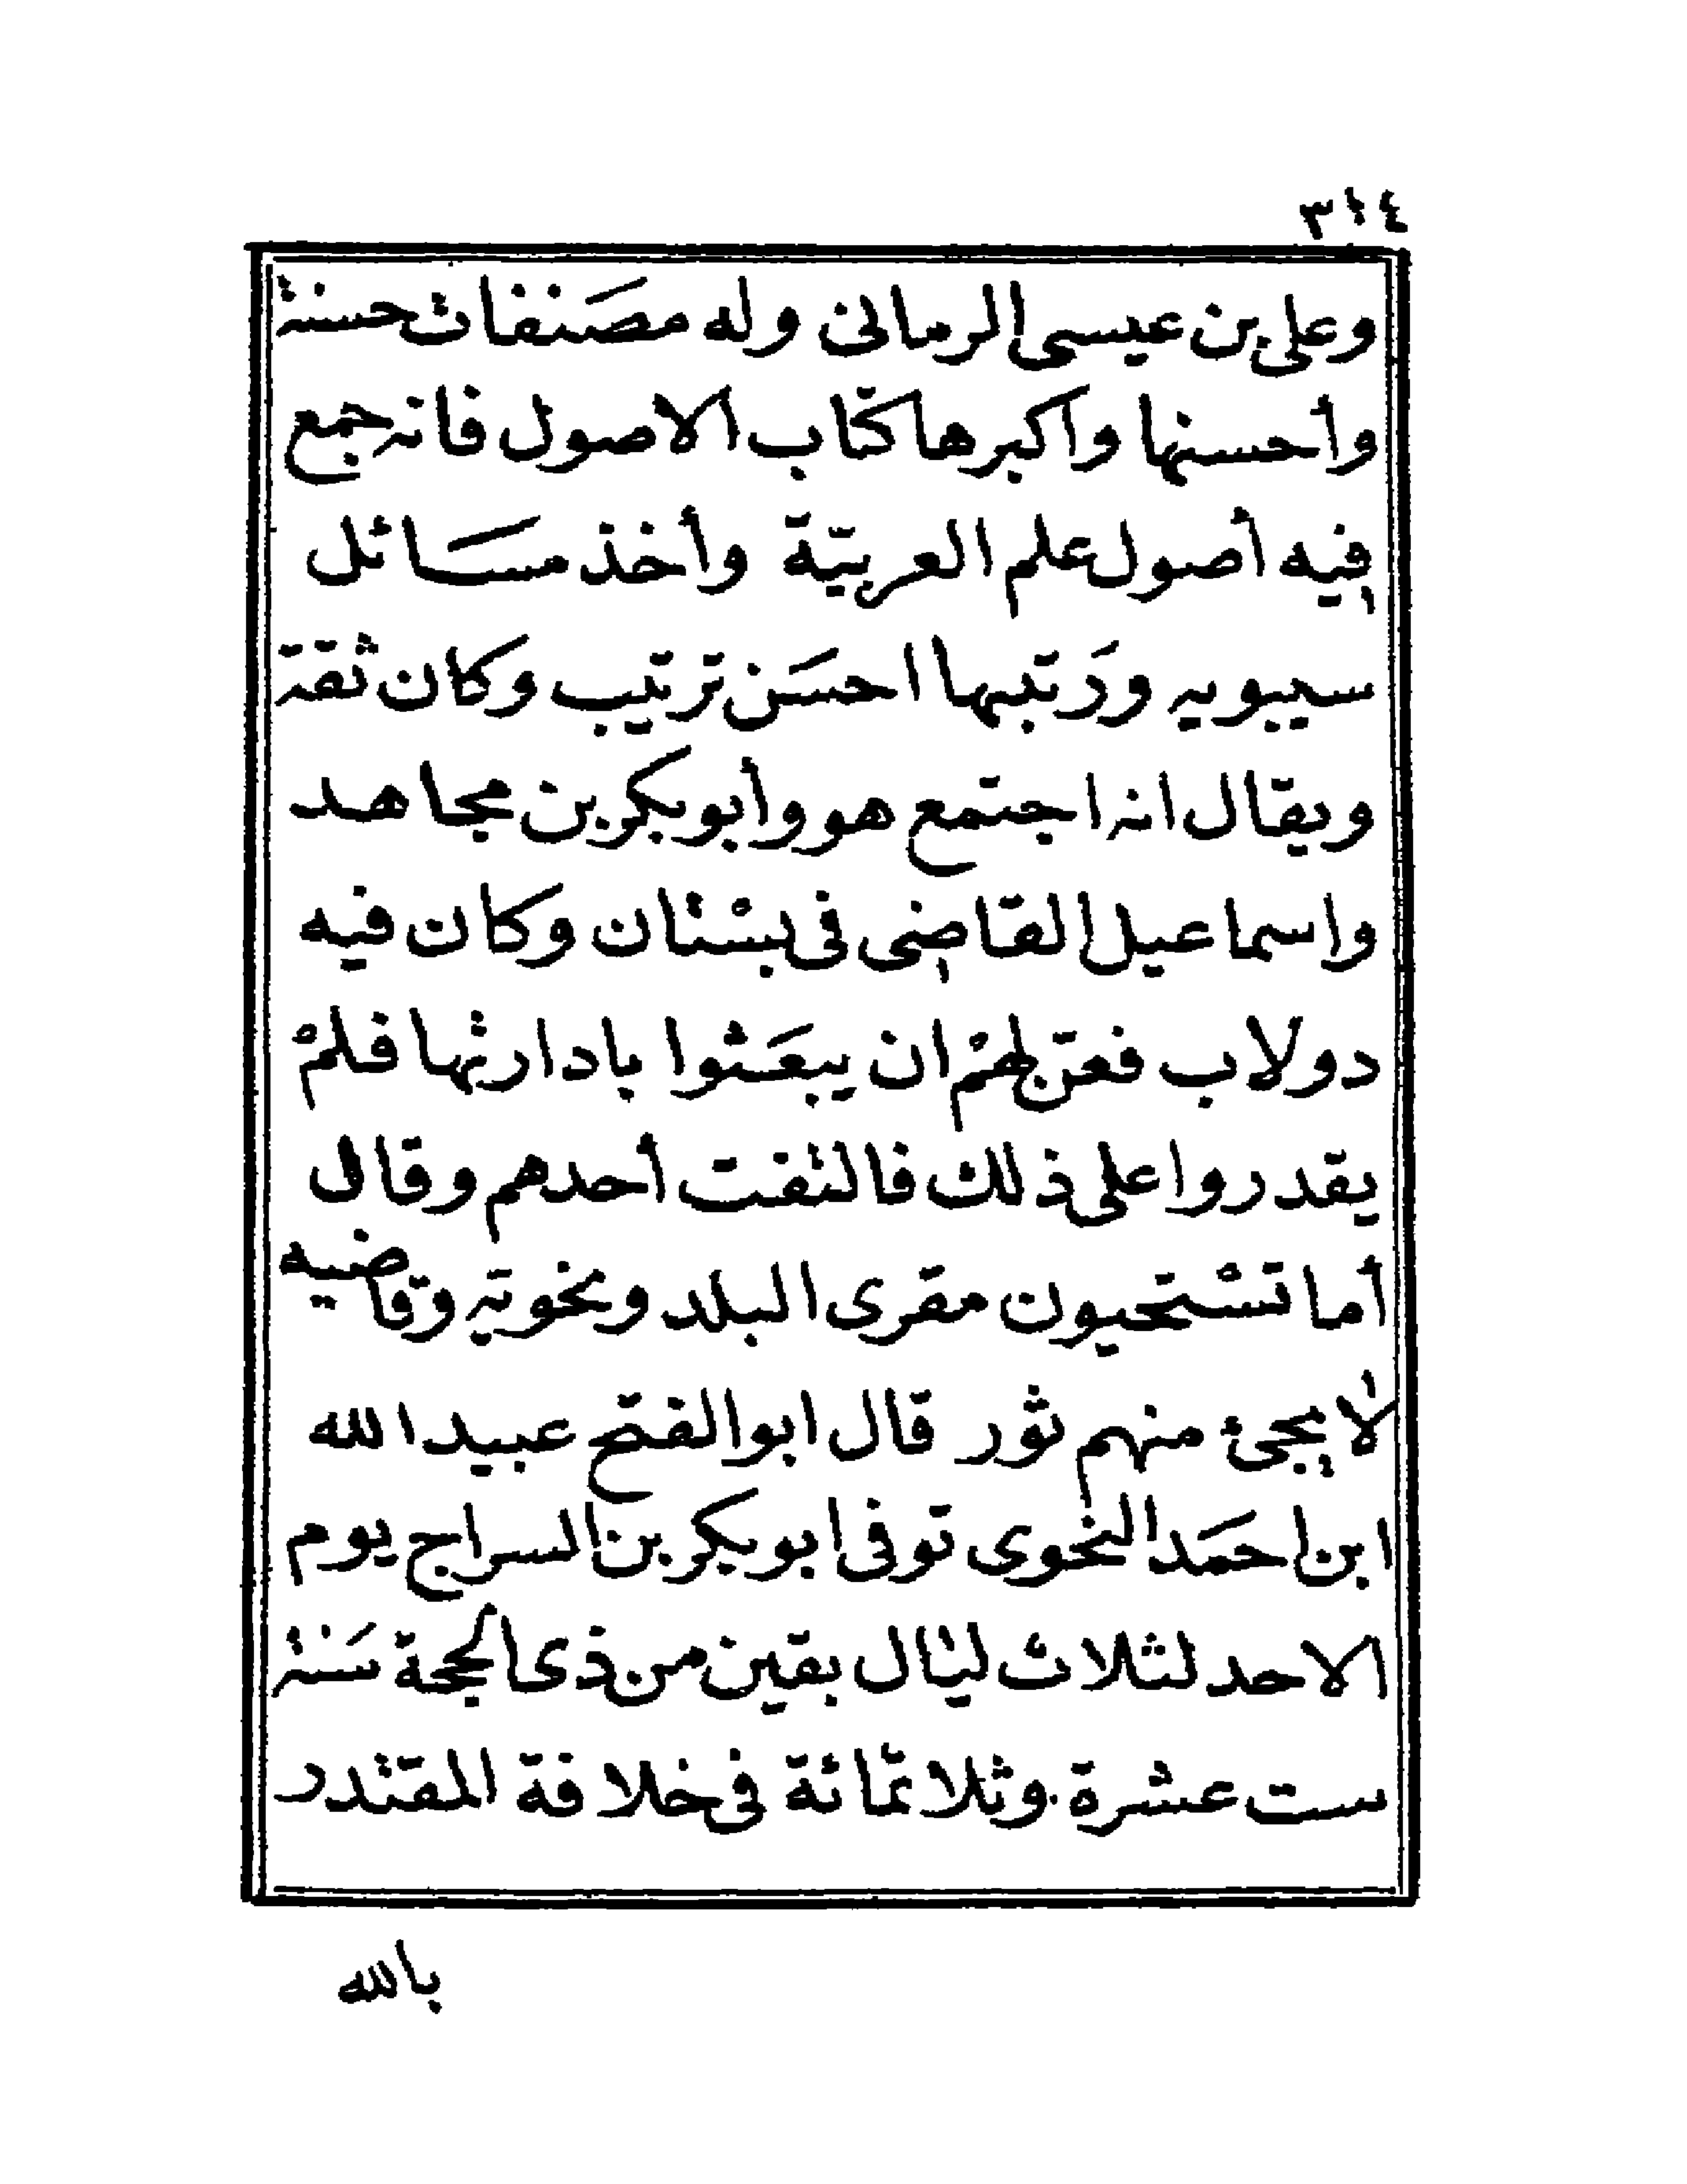 ٣١٤
وعلى بن عيسى الرمانى وله مصَنفات حسنة
وأحسنها واكبرها كتاب الاصول فانه جمع
فيه أصول علم العربيّة وأخذ مسَائل
سيبويه ورَتبها احسَن ترتيب وكان ثقة
ويقال انه اجتمع هو وأبوبكر بن مجاهد
واسماعيل القاضى فى بسْتان وكان فيه
دولاب فعنّ لهمْ ان يبعَثوا بادارتها فلمْ
يقدروا على ذلك فالتفت أحدهم وقال
أما تسْتحيون مقرى البلد ونحويه وقاضيه
لا يجئ منهم ثور قال ابوالفتح عبيدالله
ابن احمَد النحوى توفى ابوبكر بن السراج يوم
الاحد لثلاث ليال بقين من ذى الحجة سَنة
ست عشرة وثلاثمائة فى خلافة المقتدر
بالله